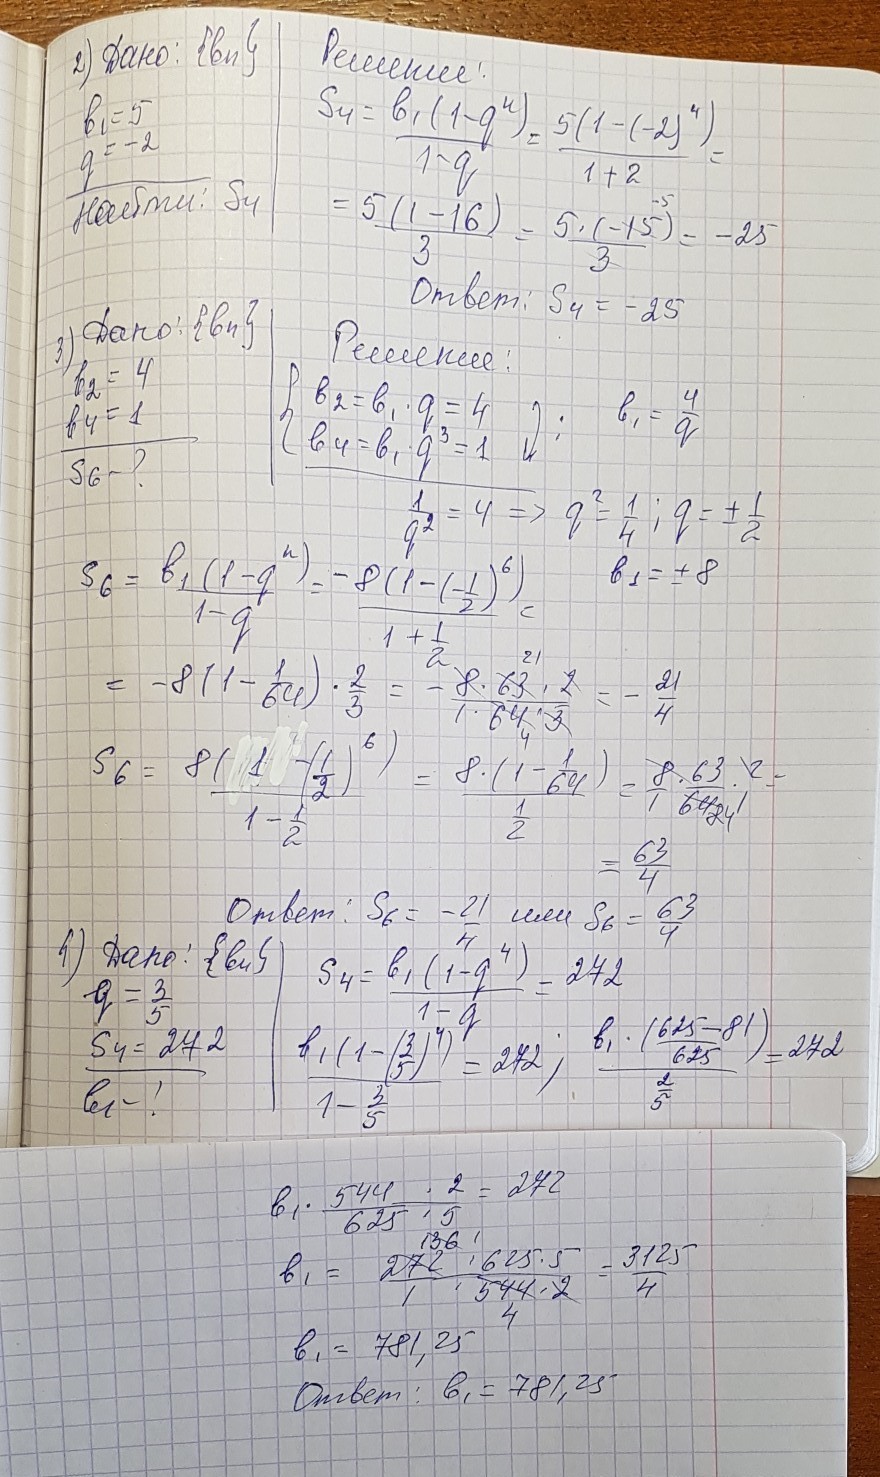 2) Дано: {bn}
b₁ = 5
q = -2
Найти: S₄
Решение:
S₄ = b₁(1-q⁴)/(1-q) = 5(1-(-2)⁴)/(1+2) =
= 5(1-16)/3 = 5·(-15)/3 -5 = -25
Ответ: S₄ = -25
3) Дано: {bn}
b₂ = 4
b₄ = 1
S₆ - ?
Решение:
{ b₂ = b₁·q = 4 ; b₁ = 4/q
b₄ = b₁·q³ = 1
1/q² = 4 => q² = 1/4 ; q = ± 1/2
b₁ = ± 8
S₆ = b₁(1-qⁿ)/(1-q) = -8(1-(-1/2)⁶)/(1+1/2) =
= -8(1 - 1/64) · 2/3 = - (8·63·2)/(1·64·3) 21 4 = - 21/4
S₆ = 8(1-(1/2)⁶)/(1-1/2) = 8·(1-1/64)/(1/2) = 8/1 · 63/64 · 2/1 =
= 63/4
Ответ: S₆ = -21/4 или S₆ = 63/4
4) Дано: {bn}
q = 3/5
S₄ = 272
b₁ - ?
S₄ = b₁(1-q⁴)/(1-q) = 272
b₁(1-(3/5)⁴)/(1-3/5) = 272 ; b₁·((625-81)/625)/(2/5) = 272
b₁ · (544 · 2)/(625 · 5) = 272
b₁ = 272/1 · (625·5)/(544·2) 136 1 4 = 3125/4
b₁ = 781,25
Ответ: b₁ = 781,25